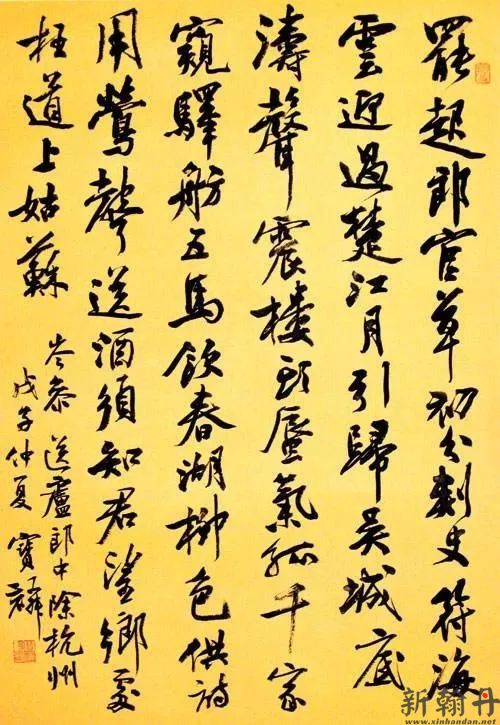 罷起郎官草初分刺史符海
雲迎過楚江月引歸吳城底
濤聲震楼蜃氣孤千家
窺驛舫五馬飲春湖柳色供詩
用鶯聲送酒須知君望鄉處
枉道上姑蘇
岑參 送廬郎中除杭州
戊子仲夏 寶麟
新翰丹
www.xinhandan.net